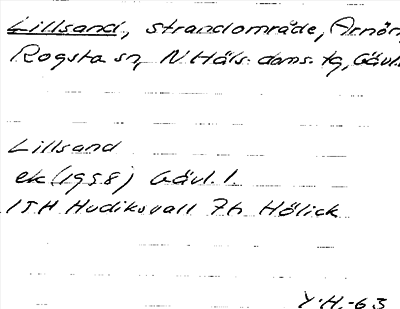 Lillsand, strandområde, Arnön,
Rogsta sn, N. Häls. doms. tg, Gävl.
Lillsand
ek (1958) Gävl. l.
15H Hudiksvall 7h Hölick
Y.H.-63